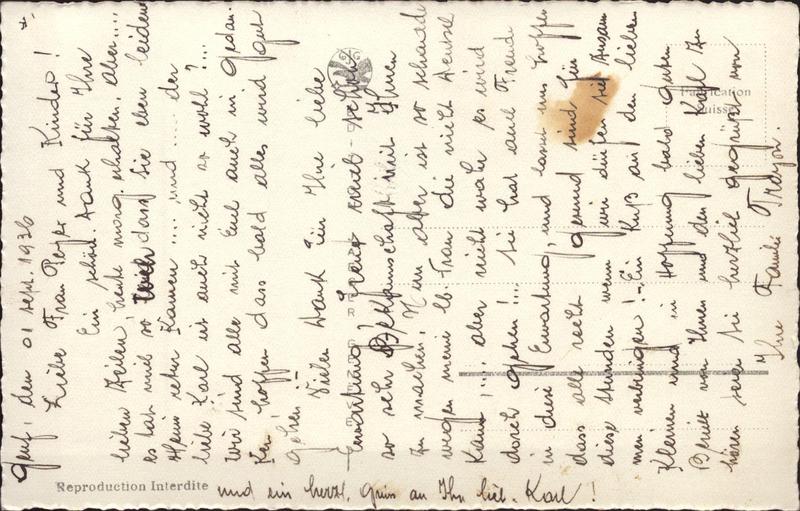 Genf, den 01 sept. 1936
Liebe Frau Peyer und Kinder!
Ein schön. Dank für Ihre
lieben Zeilen, heute morg. erhalten, aber...
es tat mir so dass Sie eben leiden
Herrn retur Kamen .... und .... der
liebe Karl ist auch nicht so wohl?...
Wir sind alle mit Euch auch in Gedan.
Ken hoffen dass bald alles wird gut
gehen!
Vielen Dank für Ihre liebe
Einladung
so sehr Bekanntschaft mit Ihnen
zu machen. Nun aber ist so schade
wegen meine lb. Frau die nicht deutsch
Kann,.... aber nicht wahr es wird
doch gehen!... Sie hat auch Freude
in diese Erwartung, und lasst uns hoffen
dass alle recht gesund sind für
diese Stunden wenn wir dürfen
men verbringen! - Ein Kuß auf den lieben
Kleinen und in Hoffnung bald guten
Bericht von Ihnen und den lieben Karl zu
hören seien Sie herzlich gegrüßt von
Ihre Familie
und ein herzl. Gruss an Ihr lieb. Karl!
Fabrication
Suisse
Reproduction Interdite